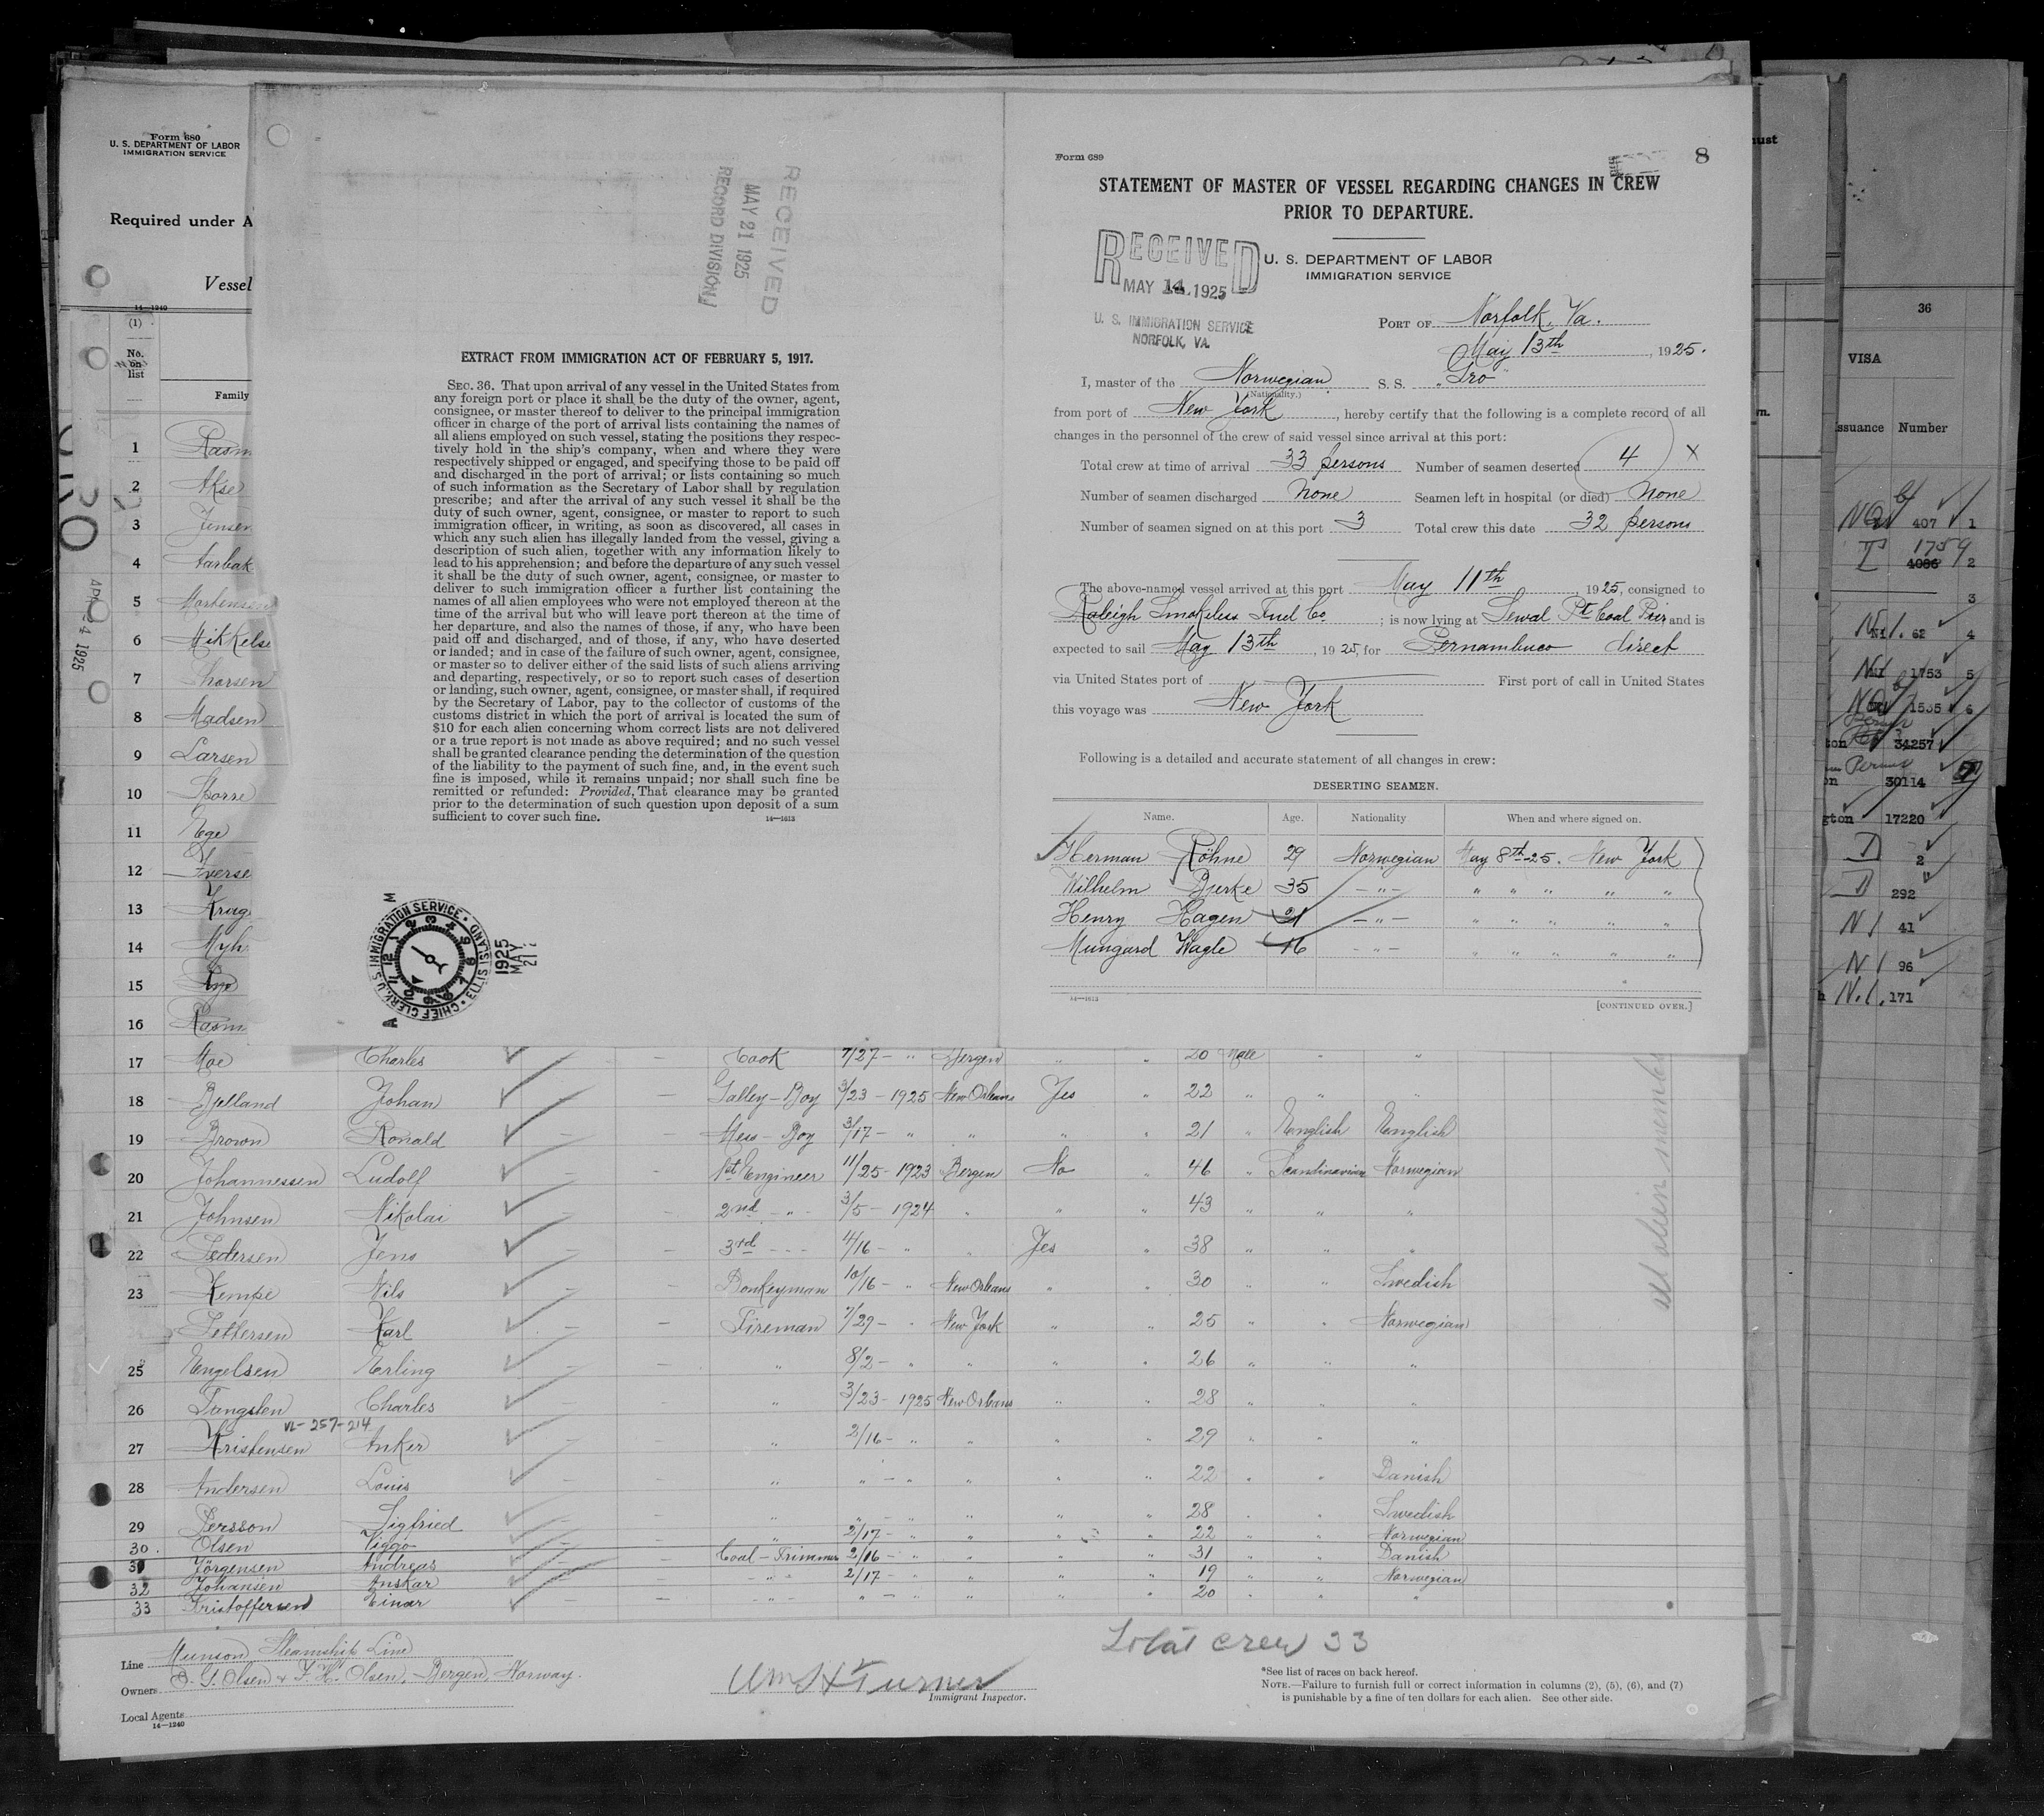 Form 680
U. S. DEPARTMENT OF LABOR
IMMIGRATION SERVICE
Required under A
Vessel
14—1240
(1)
No.
on
list
Family
1 Rasm
2 Akse
3 Jensen
4 Aarbak
5 Mortensen
6 Mikkelse
7 Thorsen
8 Madsen
9 Larsen
10 Sporre
11 Ege
12 Iverse
13 Krog
14 Myh
15
16 Rasm
APR 24 1925
RECEIVED
MAY 21 1925
RECORD DIVISION
EXTRACT FROM IMMIGRATION ACT OF FEBRUARY 5, 1917.
SEC. 36. That upon arrival of any vessel in the United States from
any foreign port or place it shall be the duty of the owner, agent,
consignee, or master thereof to deliver to the principal immigration
officer in charge of the port of arrival lists containing the names of
all aliens employed on such vessel, stating the positions they respec-
tively hold in the ship's company, when and where they were
respectively shipped or engaged, and specifying those to be paid off
and discharged in the port of arrival; or lists containing so much
of such information as the Secretary of Labor shall by regulation
prescribe; and after the arrival of any such vessel it shall be the
duty of such owner, agent, consignee, or master to report to such
immigration officer, in writing, as soon as discovered, all cases in
which any such alien has illegally landed from the vessel, giving a
description of such alien, together with any information likely to
lead to his apprehension; and before the departure of any such vessel
it shall be the duty of such owner, agent, consignee, or master to
deliver to such immigration officer a further list containing the
names of all alien employees who were not employed thereon at the
time of the arrival but who will leave port thereon at the time of
her departure, and also the names of those, if any, who have been
paid off and discharged, and of those, if any, who have deserted
or landed; and in case of the failure of such owner, agent, consignee,
or master so to deliver either of the said lists of such aliens arriving
and departing, respectively, or so to report such cases of desertion
or landing, such owner, agent, consignee, or master shall, if required
by the Secretary of Labor, pay to the collector of customs of the
customs district in which the port of arrival is located the sum of
$10 for each alien concerning whom correct lists are not delivered
or a true report is not made as above required; and no such vessel
shall be granted clearance pending the determination of the question
of the liability to the payment of such fine, and, in the event such
fine is imposed, while it remains unpaid; nor shall such fine be
remitted or refunded: Provided, That clearance may be granted
prior to the determination of such question upon deposit of a sum
sufficient to cover such fine. 14—1613
CHIEF CLERK, U.S. IMMIGRATION SERVICE · ELLIS ISLAND
1925 MAY 21
Form 689
8
STATEMENT OF MASTER OF VESSEL REGARDING CHANGES IN CREW
PRIOR TO DEPARTURE.
RECEIVED
MAY 14 1925
U. S. IMMIGRATION SERVICE
NORFOLK, VA.
U. S. DEPARTMENT OF LABOR
IMMIGRATION SERVICE
PORT OF Norfolk, Va.
May 13th, 1925.
I, master of the Norwegian S. S. "Gro"
(Nationality.)
from port of New York, hereby certify that the following is a complete record of all
changes in the personnel of the crew of said vessel since arrival at this port:
Total crew at time of arrival 33 persons Number of seamen deserted 4 X
Number of seamen discharged None Seamen left in hospital (or died) None
Number of seamen signed on at this port 3 Total crew this date 32 persons
The above-named vessel arrived at this port May 11th 1925, consigned to
Raleigh Smokeless Fuel Co; is now lying at Sewal Pt Coal Pier and is
expected to sail May 13th, 1925, for Pernambuco direct
via United States port of First port of call in United States
this voyage was New York
Following is a detailed and accurate statement of all changes in crew:
DESERTING SEAMEN.
Name. Age. Nationality. When and where signed on.
Herman Röhne 29 Norwegian May 8th-25. New York
Wilhelm Bjerke 35 —"— " " " " "
Henry Hagen 21 —"— " " " " "
Mungard Wagle 16 —"— " " " " "
14—1613 [CONTINUED OVER.]
17 Moe Charles — Cook 7/27 — " Bergen " " 20 Male " "
18 Bjelland Johan — Galley-Boy 3/23 — 1925 New Orleans Yes " 22 " " "
19 Brown Ronald — Mess-Boy 3/17 — " " " " 21 " English English
20 Johannessen Ludolf — 1st Engineer 11/25 — 1923 Bergen No " 46 " Scandinavian Norwegian
21 Johnsen Nikolai — 2nd -"- 3/5 — 1924 " " " 43 " " "
22 Pedersen Jens — 3rd --- 4/16 — " " Yes " 38 " " "
23 Kempe Nils — Donkeyman 10/16 — " New Orleans " " 30 " " Swedish
Pettersen Karl — Fireman 7/29 — " New York " " 25 " " Norwegian
25 Engelsen Erling — " 8/2 — " " " " 26 " " "
26 Tangsten Charles — " 3/23 — 1925 New Orleans " " 28 " " "
VL-257-214
27 Kristensen Anker — " 2/16 — " " " " 29 " " "
28 Andersen Louis — " " — " " " " 22 " " Danish
29 Persson Sigfried " " — " " " " 28 " " Swedish
30. Olsen Viggo " 2/17 — " " " " 22 " " Norwegian
31 Jörgensen Andreas — Coal-Trimmer 2/16 — " " " " 31 " " Danish
32 Johansen Anskar — -"- 2/17 — " " " " 19 " " Norwegian
33 Kristoffersen Einar — -"- " — " " " " 20 " " "
all alien members
Total crew 33
Line Munson Steamship Line
Owners O. G. Olsen & F. H. Olsen, Bergen, Norway.
Local Agents
14—1240
Wm H Turner
Immigrant Inspector.
*See list of races on back hereof.
NOTE.—Failure to furnish full or correct information in columns (2), (5), (6), and (7)
is punishable by a fine of ten dollars for each alien. See other side.
36
VISA
ssuance Number
407 1
1759
4086 2
3
N1. 62 4
1753 5
1535 6
ton 34257
on 30114
gton 17220
2
292
N1 41
N1 96
N.1. 171